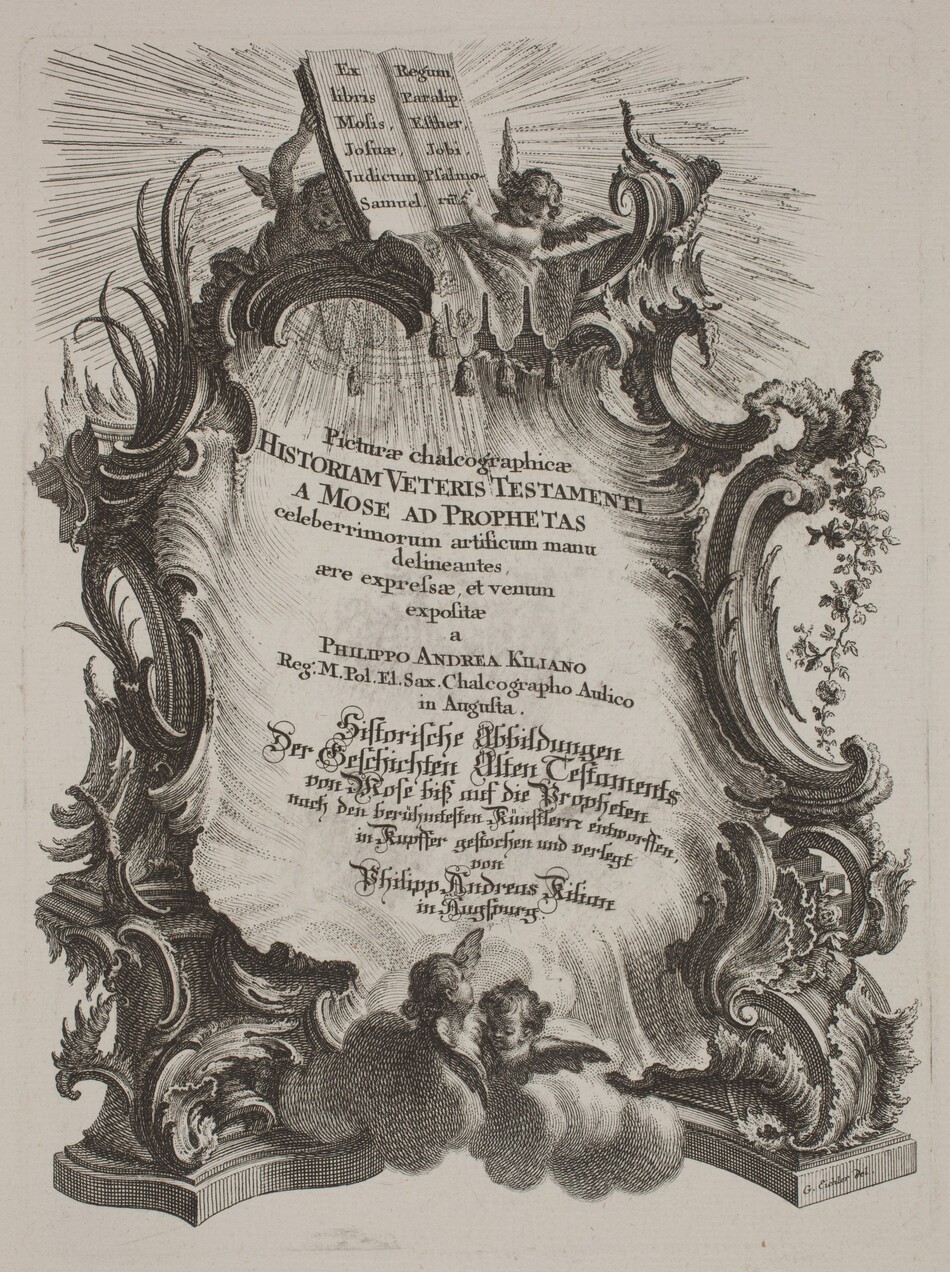 Ex
libris
Mosis,
Josuæ,
Judicum
Samuel
Regum
Paralip
Esther,
Jobi.
Psalmo-
rũ.
Picturæ chalcographicæ
HISTORIAM VETERIS TESTAMENTI
A MOSE AD PROPHETAS
celeberrimorum artificum manu
delineantes,
ære expreſsæ, et venum
expoſitæ
a
PHILIPPO ANDREA KILIANO
Reg. M. Pol. El. Sax. Chalcographo Aulico
in Auguſta.
Hiſtoriſche Abbildungen
Der Geſchichten Alten Teſtaments
von Moſe biß auf die Propheten
nach den berühmteſten Künſtlern entworffen,
in Kupffer geſtochen und verlegt
von
Philipp Andreas Kilian
in Augſpurg
G. Eichler del.